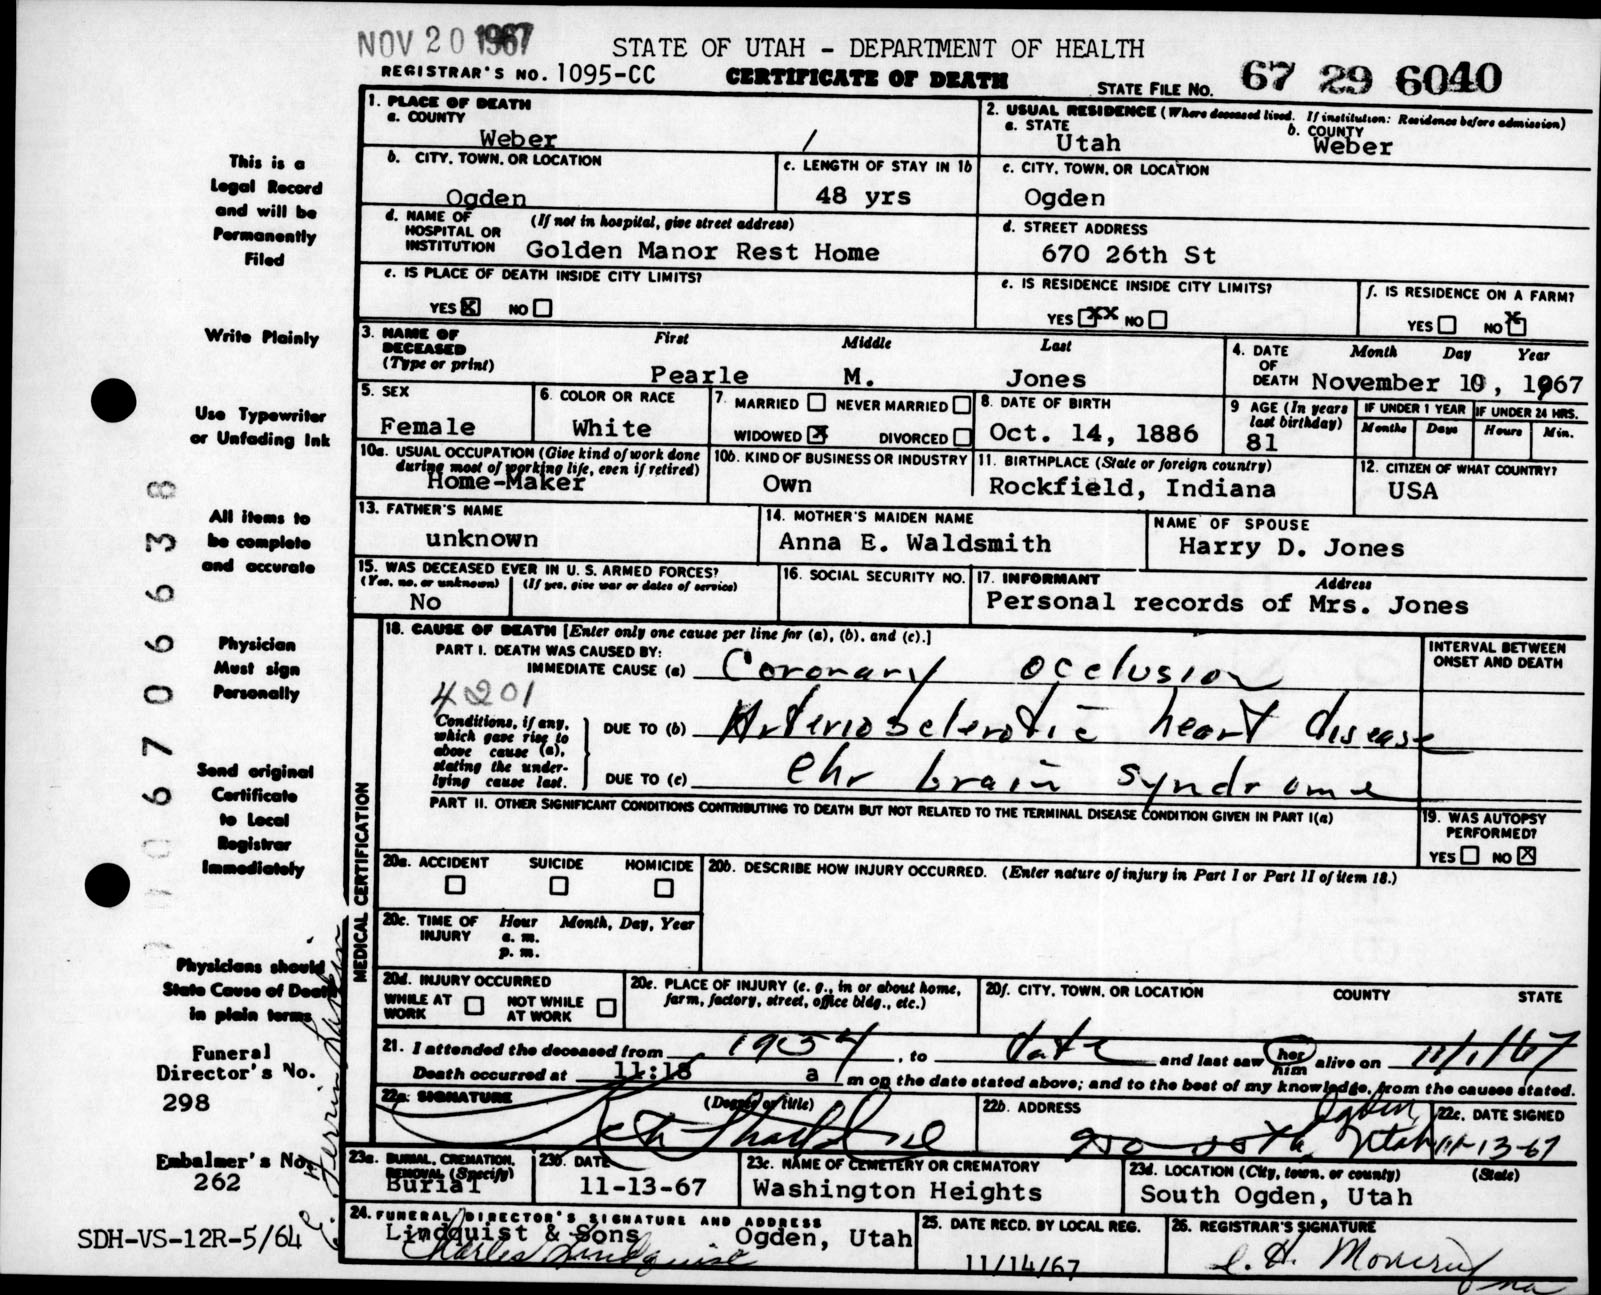 NOV 20 1967
STATE OF UTAH - DEPARTMENT OF HEALTH
REGISTRAR'S NO. 1095-CC
CERTIFICATE OF DEATH
STATE FILE NO. 67 29 6040
This is a
Legal Record
and will be
Permanently
Filed
Write Plainly
Use Typewriter
or Unfading Ink
All items to
be complete
and accurate
Physician
Must sign
Personally
Send original
Certificate
to Local
Registrar
Immediately
Physicians should
State Cause of Death
in plain terms
Funeral
Director's No.
298
Embalmer's No.
262
SDH-VS-12R-5/64
067066638
1. PLACE OF DEATH
a. COUNTY
Weber
2. USUAL RESIDENCE (Where deceased lived. If institution: Residence before admission)
a. STATE
Utah
b. COUNTY
Weber
b. CITY, TOWN, OR LOCATION
Ogden
c. LENGTH OF STAY IN 1b
48 yrs
c. CITY, TOWN, OR LOCATION
Ogden
d. NAME OF HOSPITAL OR INSTITUTION (If not in hospital, give street address)
Golden Manor Rest Home
d. STREET ADDRESS
670 26th St
e. IS PLACE OF DEATH INSIDE CITY LIMITS?
YES X NO
e. IS RESIDENCE INSIDE CITY LIMITS?
YES XX NO
f. IS RESIDENCE ON A FARM?
YES NO X
3. NAME OF DECEASED (Type or print)
First Middle Last
Pearle M. Jones
4. DATE OF DEATH
Month Day Year
November 10, 1967
5. SEX
Female
6. COLOR OR RACE
White
7. MARRIED NEVER MARRIED
WIDOWED X DIVORCED
8. DATE OF BIRTH
Oct. 14, 1886
9 AGE (In years last birthday)
81
IF UNDER 1 YEAR
Months Days
IF UNDER 24 HRS.
Hours Min.
10a. USUAL OCCUPATION (Give kind of work done during most of working life, even if retired)
Home-Maker
10b. KIND OF BUSINESS OR INDUSTRY
Own
11. BIRTHPLACE (State or foreign country)
Rockfield, Indiana
12. CITIZEN OF WHAT COUNTRY?
USA
13. FATHER'S NAME
unknown
14. MOTHER'S MAIDEN NAME
Anna E. Waldsmith
NAME OF SPOUSE
Harry D. Jones
15. WAS DECEASED EVER IN U. S. ARMED FORCES?
(Yes, no, or unknown) (If yes, give war or dates of service)
No
16. SOCIAL SECURITY NO.
17. INFORMANT Address
Personal records of Mrs. Jones
MEDICAL CERTIFICATION
18. CAUSE OF DEATH [Enter only one cause per line for (a), (b), and (c).]
PART I. DEATH WAS CAUSED BY:
IMMEDIATE CAUSE (a) Coronary occlusion
4201
Conditions, if any, which gave rise to above cause (a), stating the underlying cause last.
DUE TO (b) Arteriosclerotic heart disease
DUE TO (c) chr brain syndrome
INTERVAL BETWEEN ONSET AND DEATH
PART II. OTHER SIGNIFICANT CONDITIONS CONTRIBUTING TO DEATH BUT NOT RELATED TO THE TERMINAL DISEASE CONDITION GIVEN IN PART I(a)
19. WAS AUTOPSY PERFORMED?
YES NO X
20a. ACCIDENT SUICIDE HOMICIDE
20b. DESCRIBE HOW INJURY OCCURRED. (Enter nature of injury in Part I or Part II of item 18.)
20c. TIME OF INJURY
Hour Month, Day, Year
a. m.
p. m.
20d. INJURY OCCURRED
WHILE AT WORK NOT WHILE AT WORK
20e. PLACE OF INJURY (e. g., in or about home, farm, factory, street, office bldg., etc.)
20f. CITY, TOWN, OR LOCATION COUNTY STATE
21. I attended the deceased from 1954, to date and last saw her him alive on 11/1/67
Death occurred at 11:18 a m on the date stated above; and to the best of my knowledge, from the causes stated.
22a. SIGNATURE (Degree or title)
22b. ADDRESS
Ogden,
Utah
22c. DATE SIGNED
11-13-67
23a. BURIAL, CREMATION, REMOVAL (Specify)
Burial
23b. DATE
11-13-67
23c. NAME OF CEMETERY OR CREMATORY
Washington Heights
23d. LOCATION (City, town, or county) (State)
South Ogden, Utah
24. FUNERAL DIRECTOR'S SIGNATURE AND ADDRESS
Lindquist & Sons Ogden, Utah
Charles Lindquist
25. DATE RECD. BY LOCAL REG.
11/14/67
26. REGISTRAR'S SIGNATURE